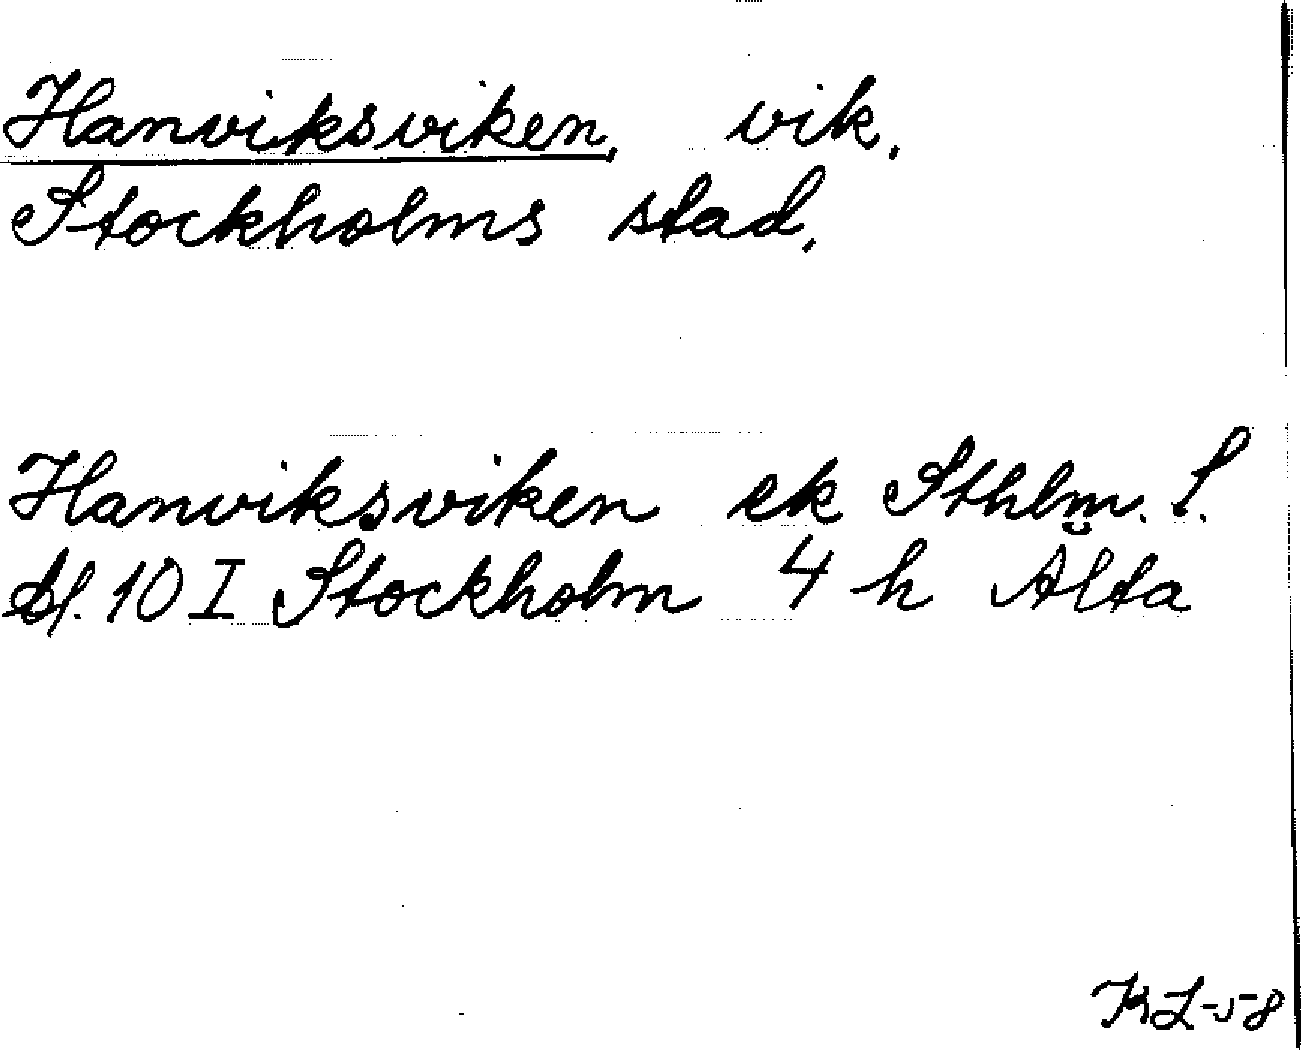 Hanviksviken, vik.
Stockholms stad.
Hanviksviken ek Sthlm. S.
bl. 10 I Stockholm 4 h Älta
KL-58